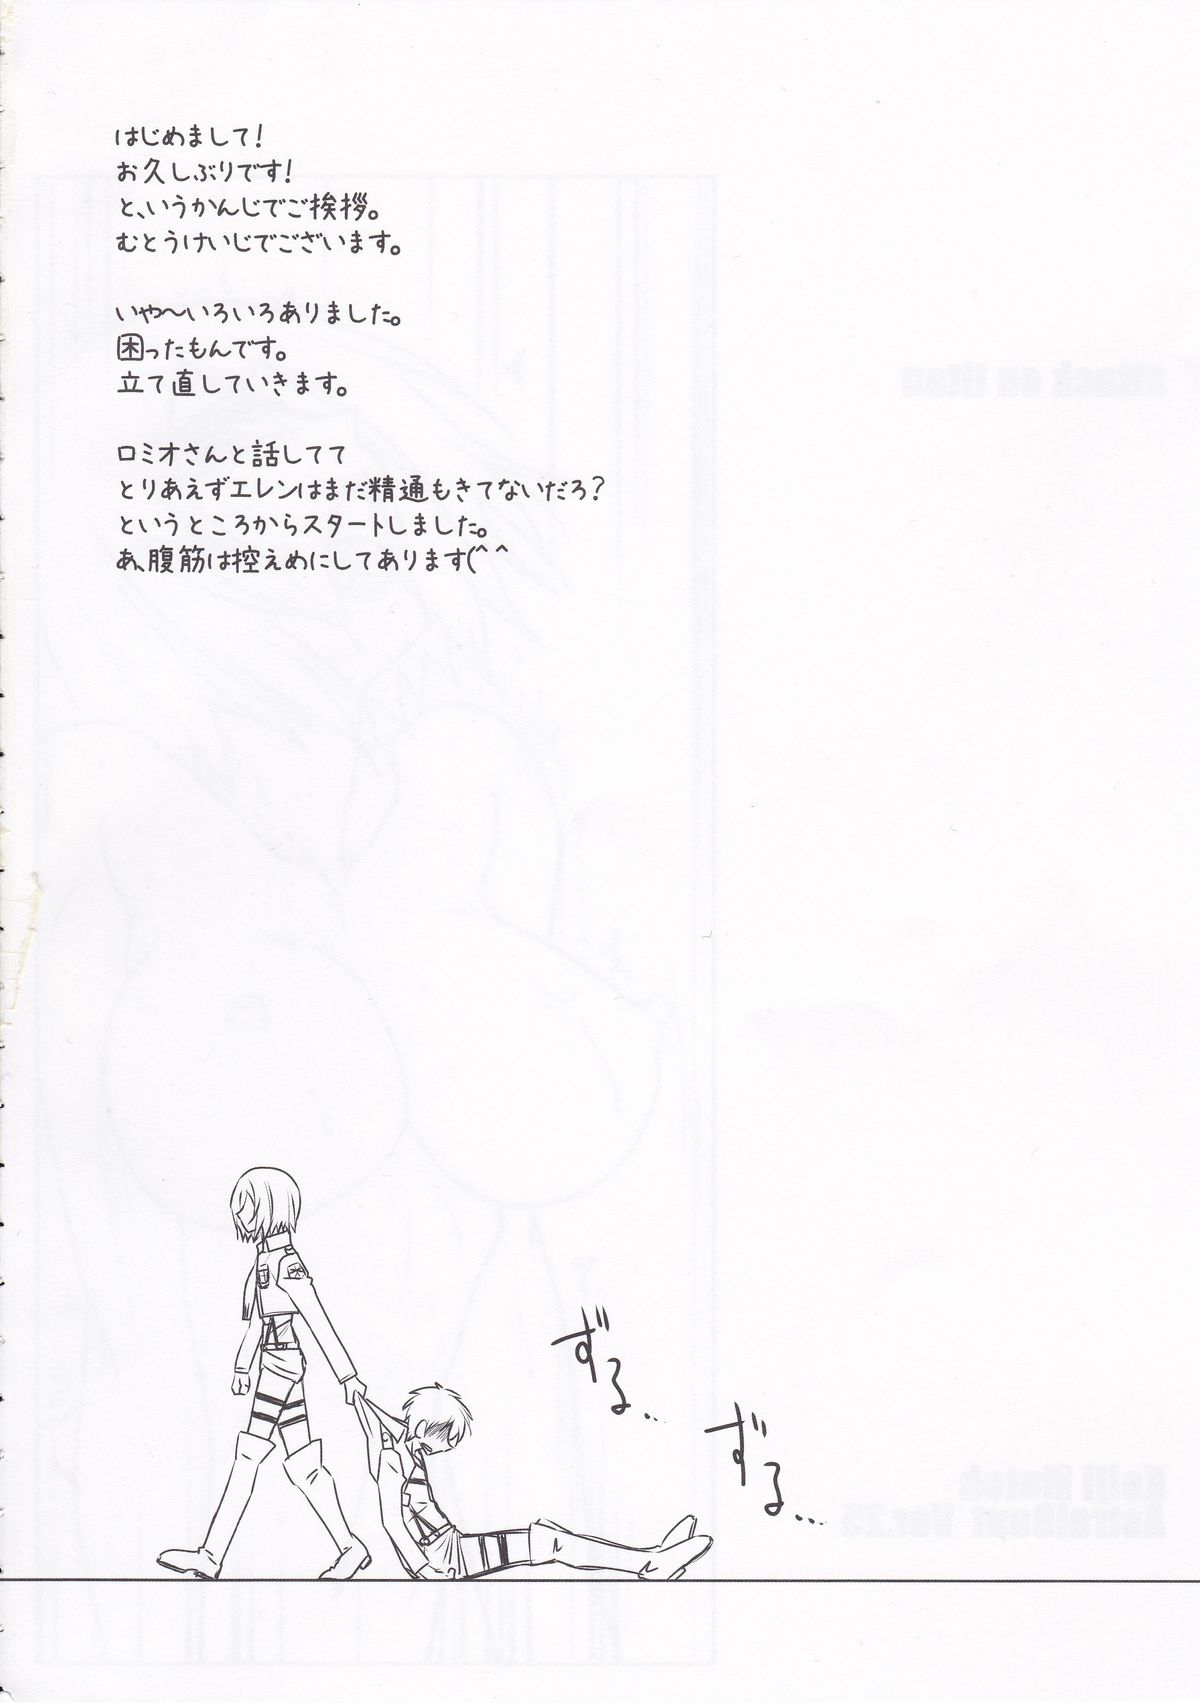 はじめまして!
お久しぶりです!
と、いうかんじでご挨拶。
むとうけいじでございます。
いや～いろいろありました。
困ったもんです。
立て直していきます。
ロミオさんと話してて
とりあえずエレンはまだ精通もきてないだろ?
というところからスタートしました。
あ、腹筋は控えめにしてあります(^ ^
ずる…
ずる…
attack on titan